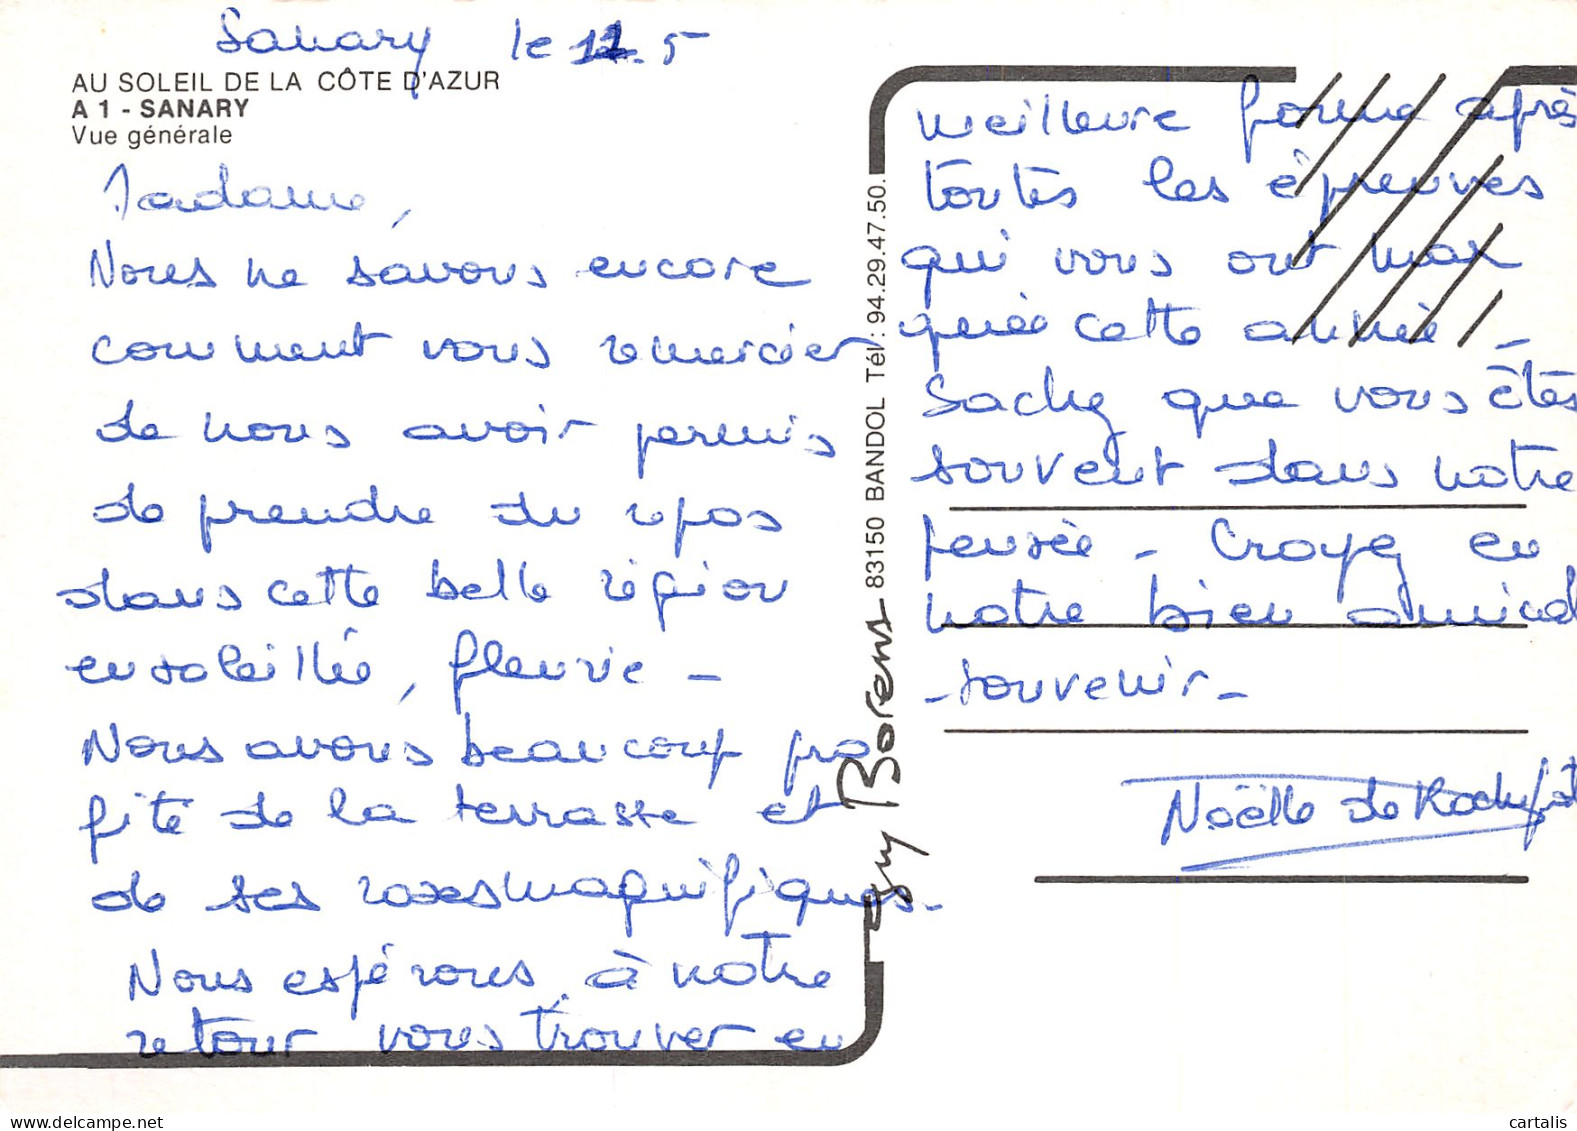 Sanary le 12. 5
AU SOLEIL DE LA CÔTE D'AZUR
A 1 - SANARY
Vue générale
Madame,
Nous ne savons encore
comment vous remercier
de nous avoir permis
de prendre du repos
dans cette belle région
ensoleillée, fleurie -
Nous avons beaucoup pro
fité de la terrasse et
de ses roses magnifiques -
Nous espérons, à notre
retour vous trouver en
guy Borens 83150 BANDOL Tél : 94.29.47.50.
meilleure forme après
toutes les épreuves
qui vous ont mar
quée cette année -
Sachez que vous êtes
souvent dans notre
pensée - Croyez en
notre bien amical
- souvenir -
Noëlle de Rochefort
cartalis